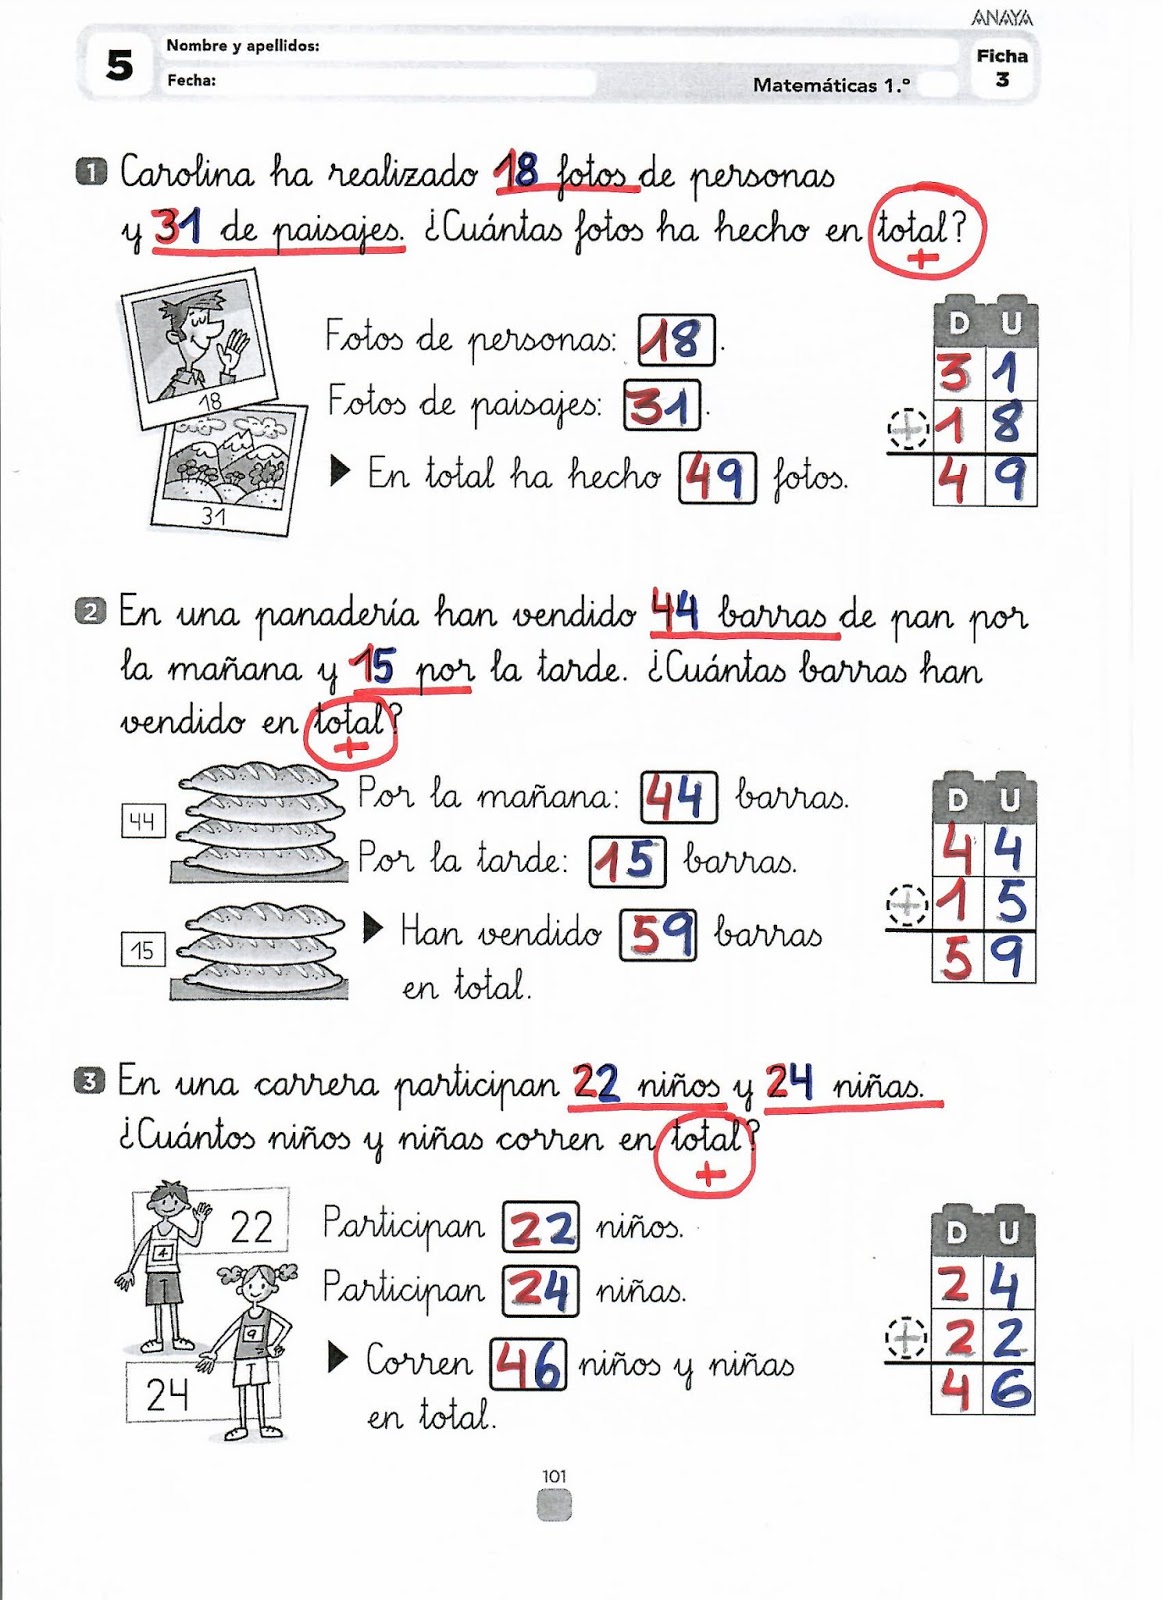 ANAYA
5
Nombre y apellidos:
Fecha:
Matemáticas 1.º
Ficha
3
1 Carolina ha realizado 18 fotos de personas
y 31 de paisajes. ¿Cuántas fotos ha hecho en total?
+
18
31
Fotos de personas: 18.
Fotos de paisajes: 31.
En total ha hecho 49 fotos.
D U
3 1
+ 1 8
4 9
2 En una panadería han vendido 44 barras de pan por
la mañana y 15 por la tarde. ¿Cuántas barras han
vendido en total?
+
44
15
Por la mañana: 44 barras.
Por la tarde: 15 barras.
Han vendido 59 barras
en total.
D U
4 4
+ 1 5
5 9
3 En una carrera participan 22 niños y 24 niñas.
¿Cuántos niños y niñas corren en total?
+
22
4
9
24
Participan 22 niños.
Participan 24 niñas.
Corren 46 niños y niñas
en total.
D U
2 4
+ 2 2
4 6
101